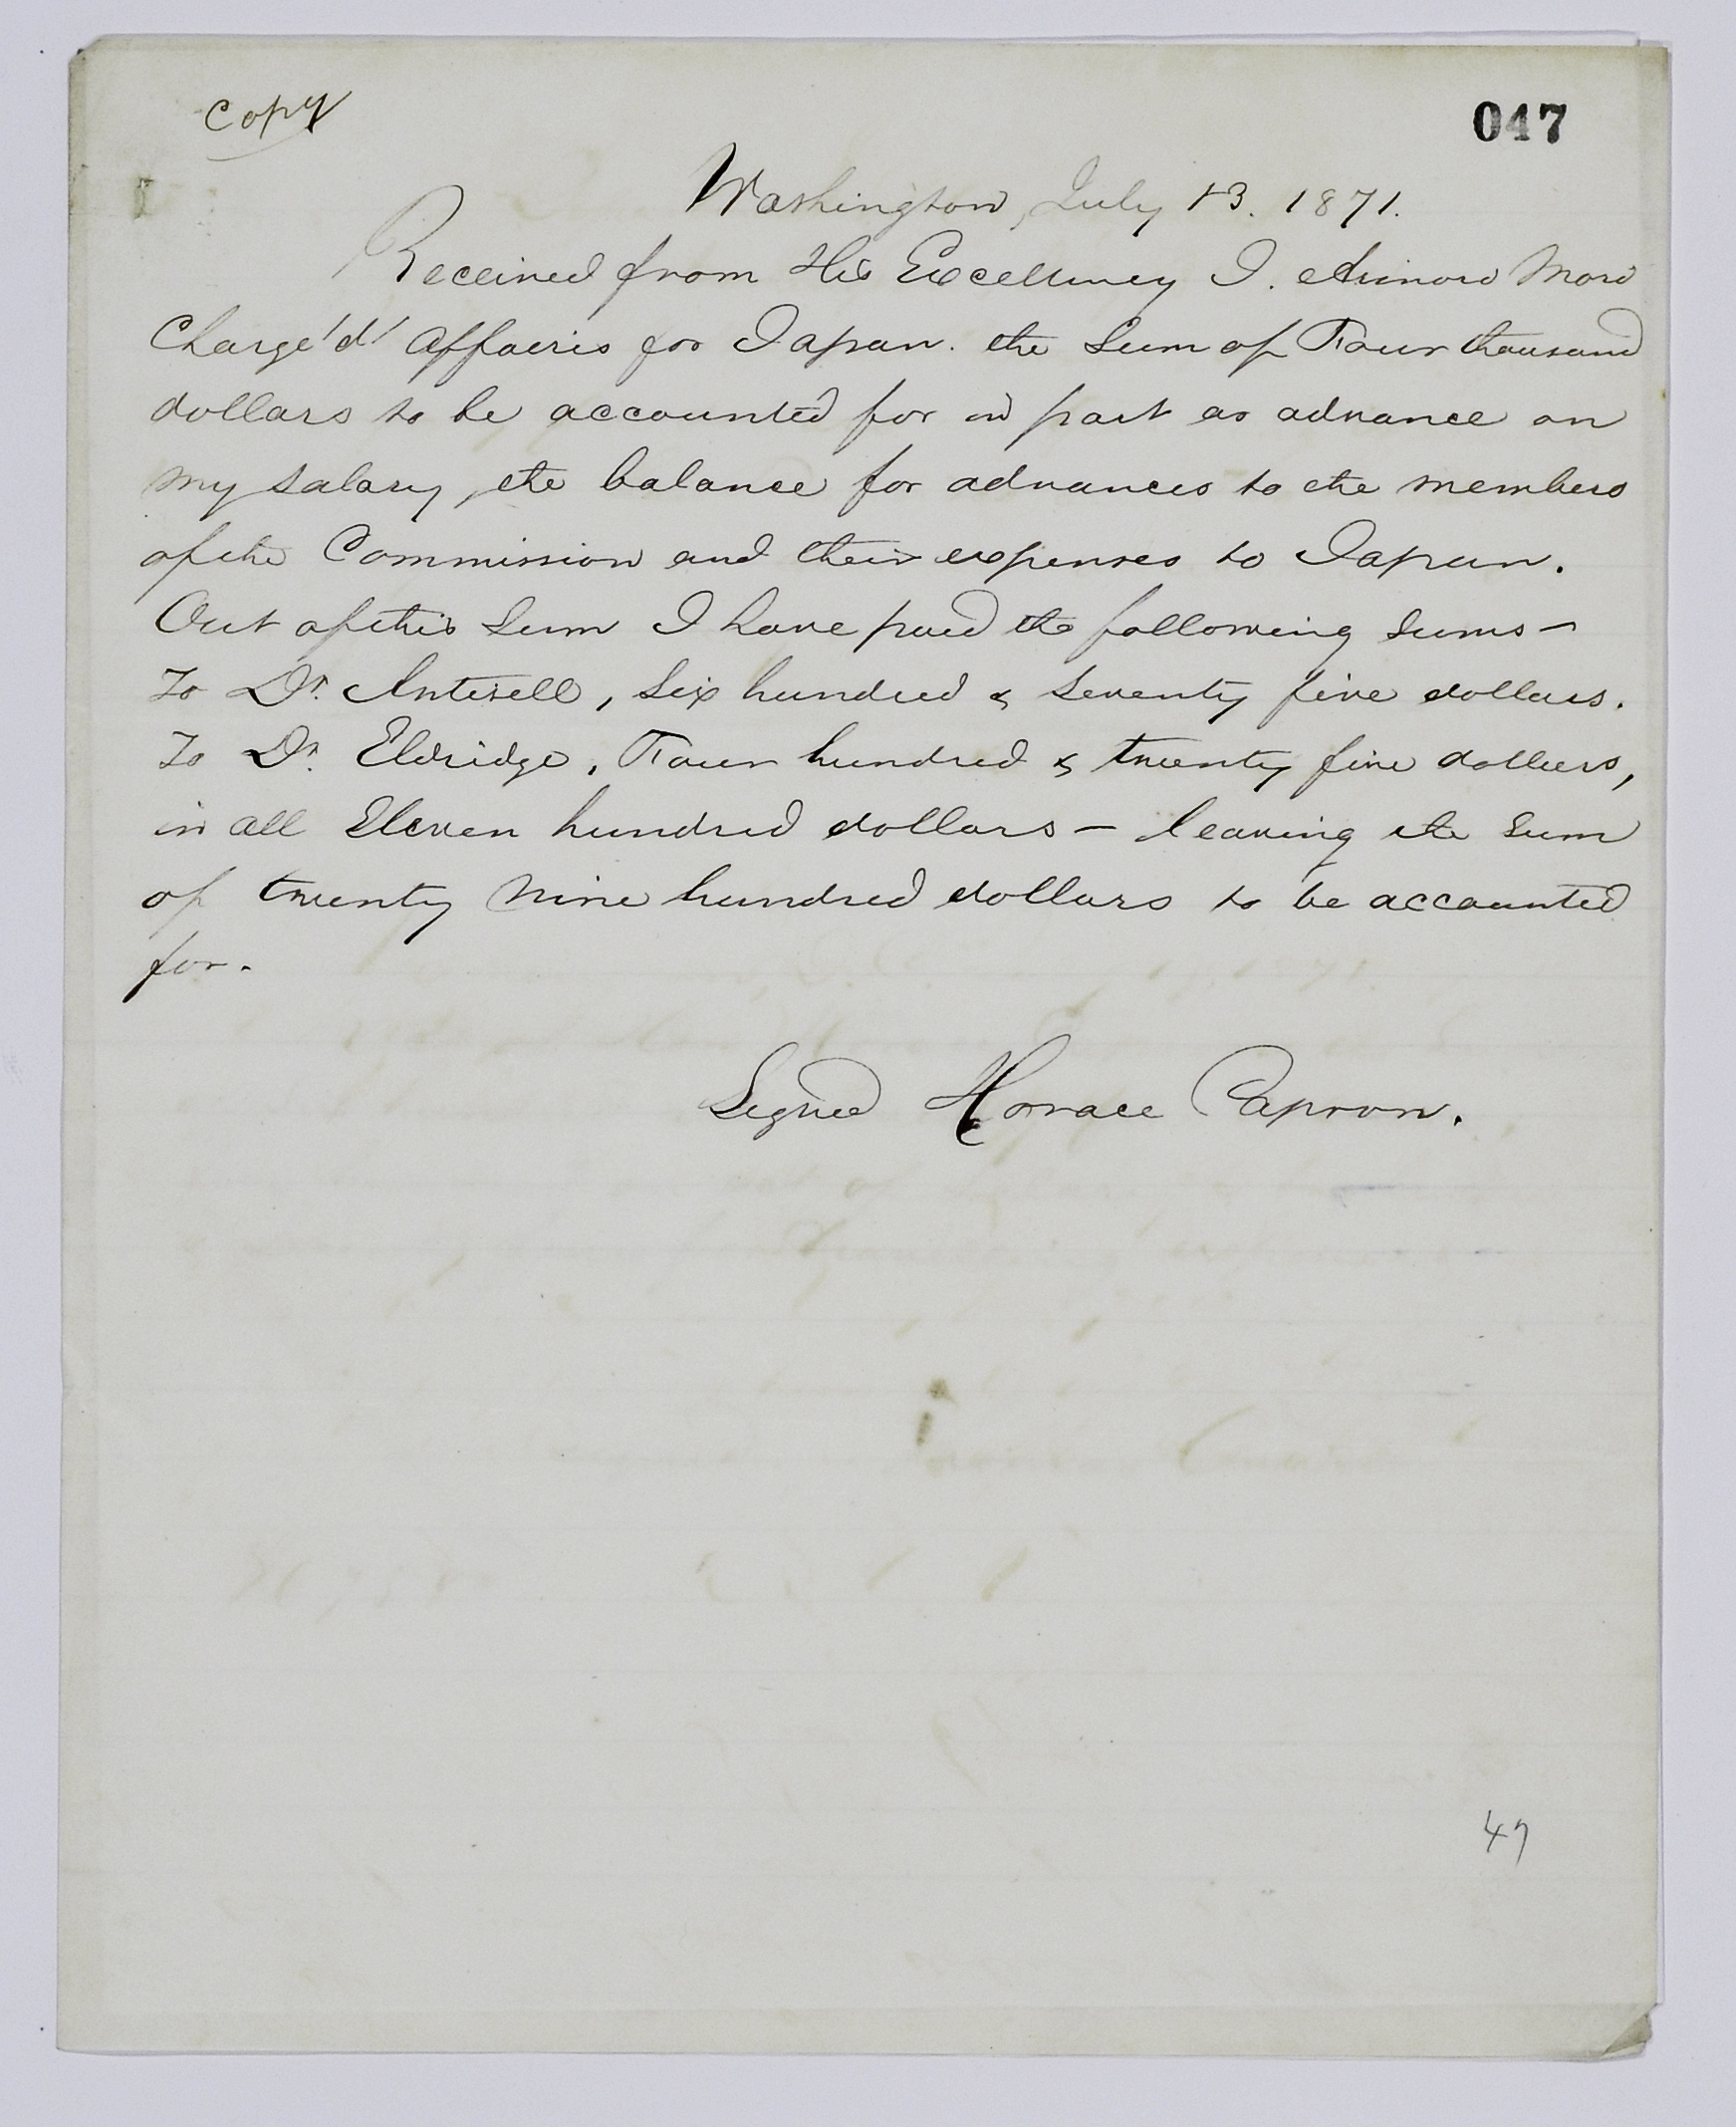 Copy
047
Washington, July 13. 1871.
Received from His Excellency J. Arinori Mori
Charge' d' Affaires for Japan. the Sum of Four thousand
dollars to be accounted for in part as advance on
my salary, the balance for advances to the members
of the Commission and their expenses to Japan.
Out of this Sum I have paid the following sums—
To Dr. Antisell, Six hundred & seventy five dollars.
To Dr. Eldridge, Four hundred & twenty five dollars,
in all Eleven hundred dollars — leaving the Sum
of twenty nine hundred dollars to be accounted
for.
Signed Horace Capron.
47